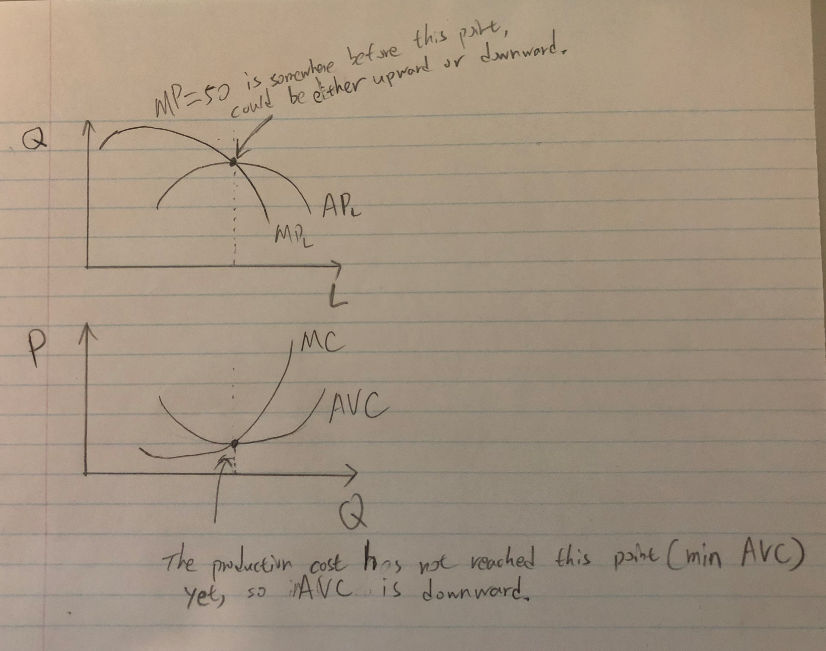 MP=50 is somewhere before this point,
could be either upward or downward.
Q
APL
MPL
L
P
MC
AVC
Q
The production cost has not reached this point (min AVC)
yet, so AVC is downward.